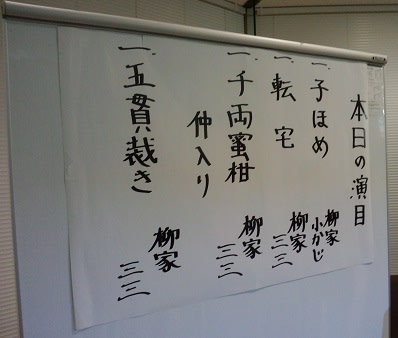 本日の演目
一、子ほめ 柳家小かじ
一、転宅 柳家三三
一、千両蜜柑 柳家三三
仲入り
一、五貫裁き 柳家三三